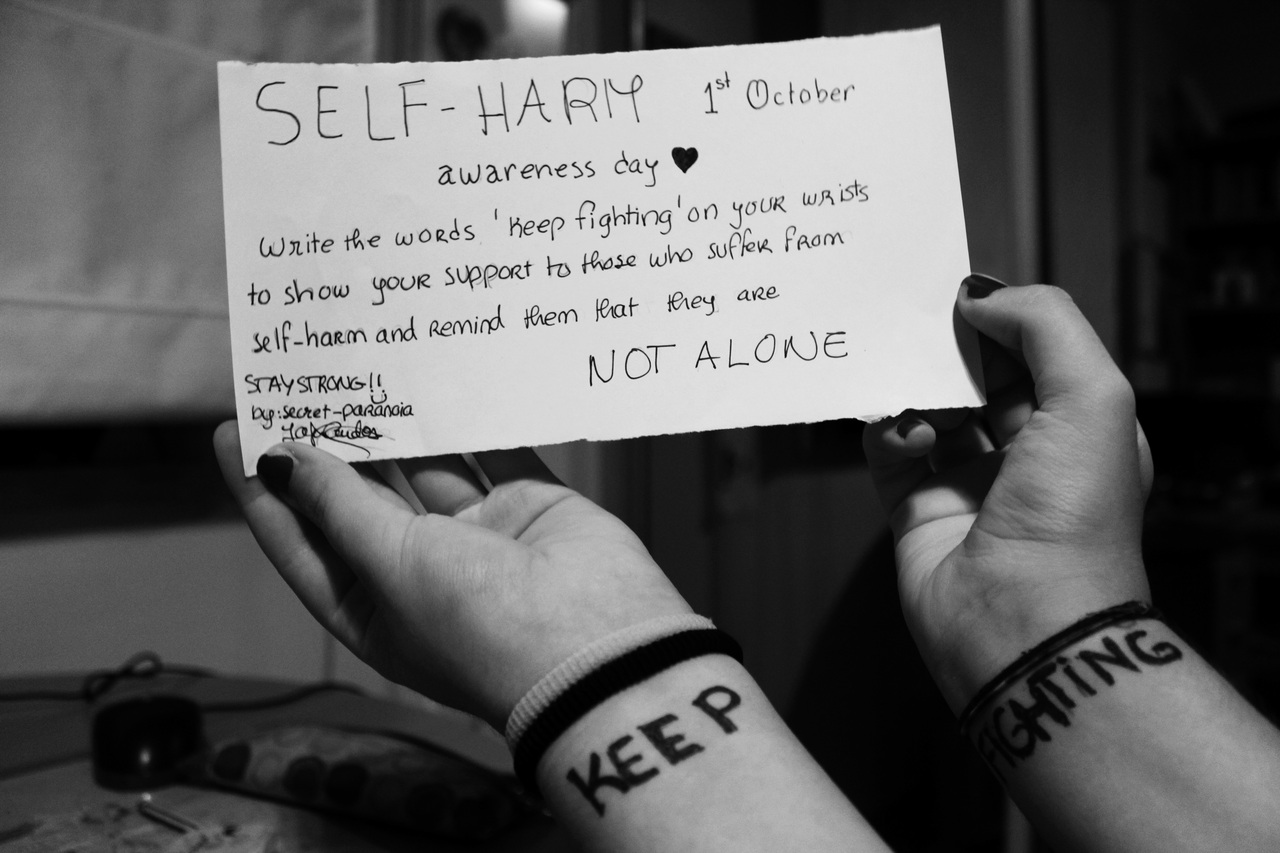 SELF-HARM 1st October
awareness day ♥
Write the words 'keep fighting' on your wrists
to show your support to those who suffer from
self-harm and remind them that they are
NOT ALONE
STAY STRONG!!
by: secret-paranoia
KEEP
FIGHTING